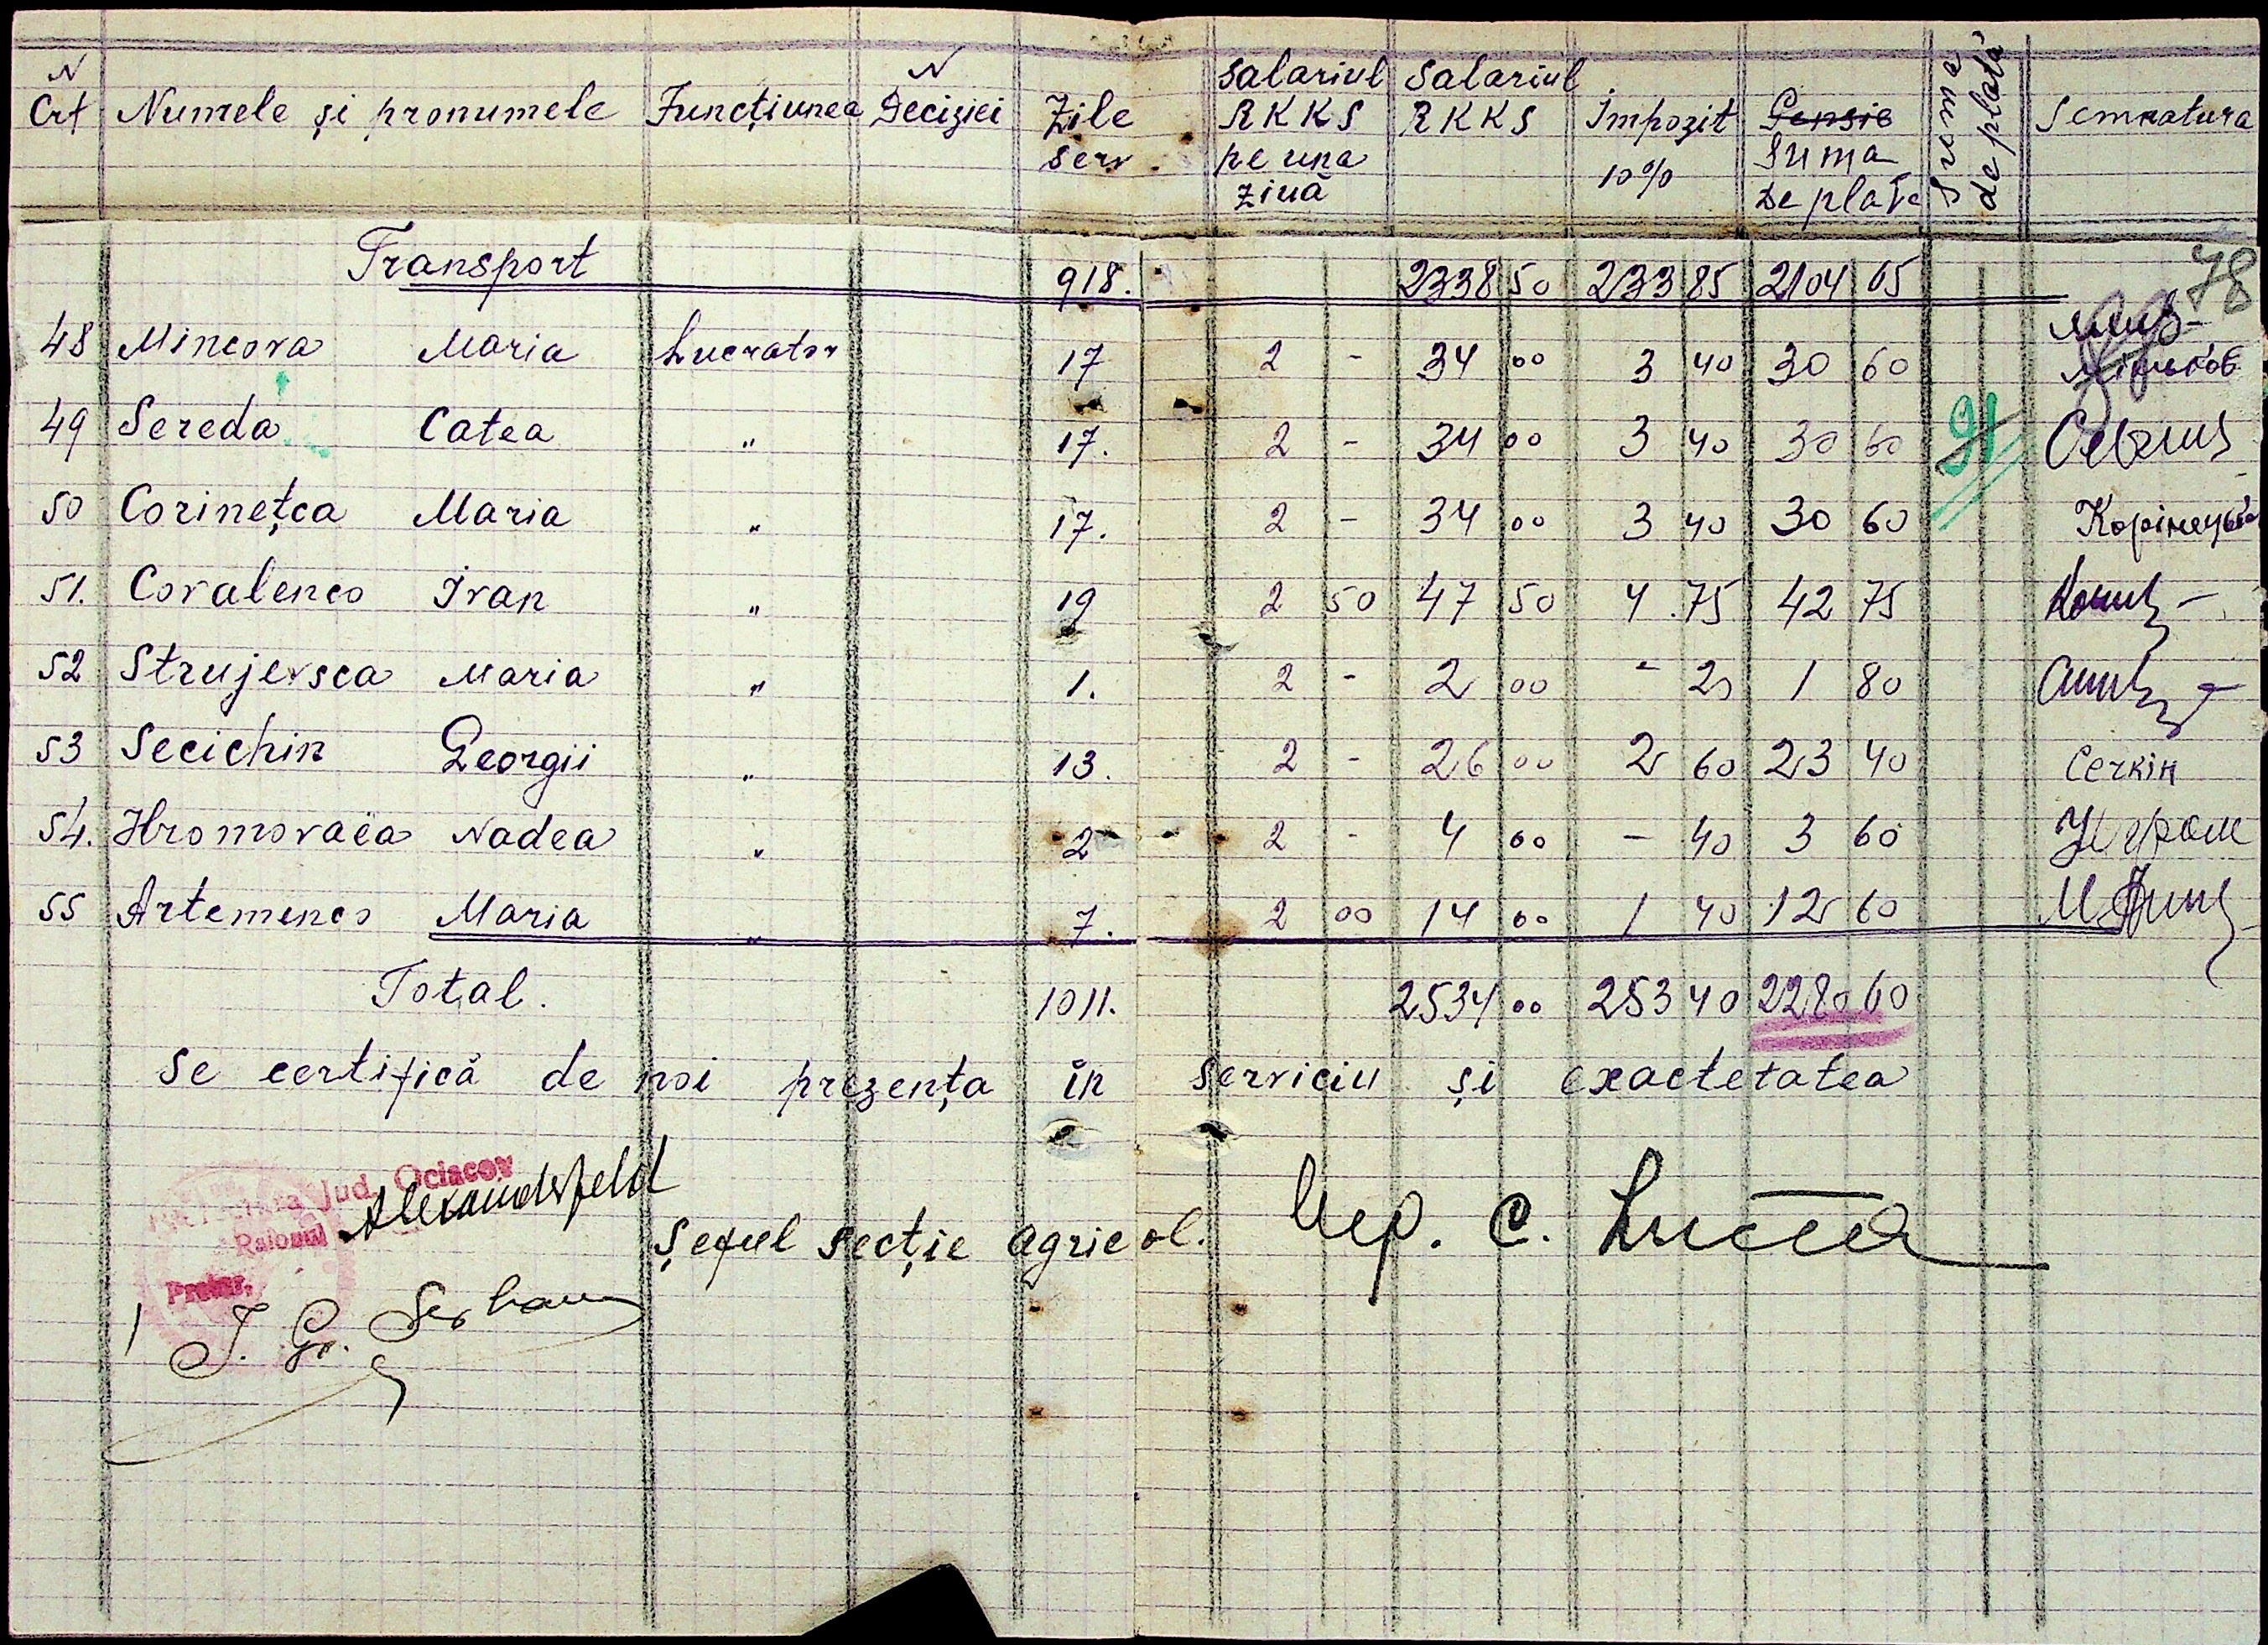 N Crt Numele și pronumele Funcțiunea N Deciziei Zile serv. Salariul RKKS pe una ziuă Salariul RKKS Impozit 10% Pensie Suma de plată Suma de plată Semnatura
78
Transport 918. 2338 50 233 85 2104 65
48 Mincova Maria Lucrator 17 2 - 34 00 3 40 30 60
49 Sereda Catea " 17. 2 - 34 00 3 40 30 60 91
50 Corinețca Maria " 17. 2 - 34 00 3 40 30 60
51. Covalenco Ivan " 19 2 50 47 50 4.75 42 75
52 Strujevsca Maria " 1. 2 - 2 00 - 20 1 80
53 Secichin Georgii " 13. 2 - 26 00 2 60 23 40 Сечкін
54. Hromovaia Nadea " 2 2 - 4 00 - 40 3 60
55 Artemenco Maria " 7. 2 00 14 00 1 40 12 60
Total. 1011. 2534 00 253 40 2280 60
Se certifică de noi prezența în serviciu și exactetatea
Prefectura Jud. Ociacov
Raionul Alexanderfeld
Pretor,
Șeful secție agricol.
I. Gr. Serban